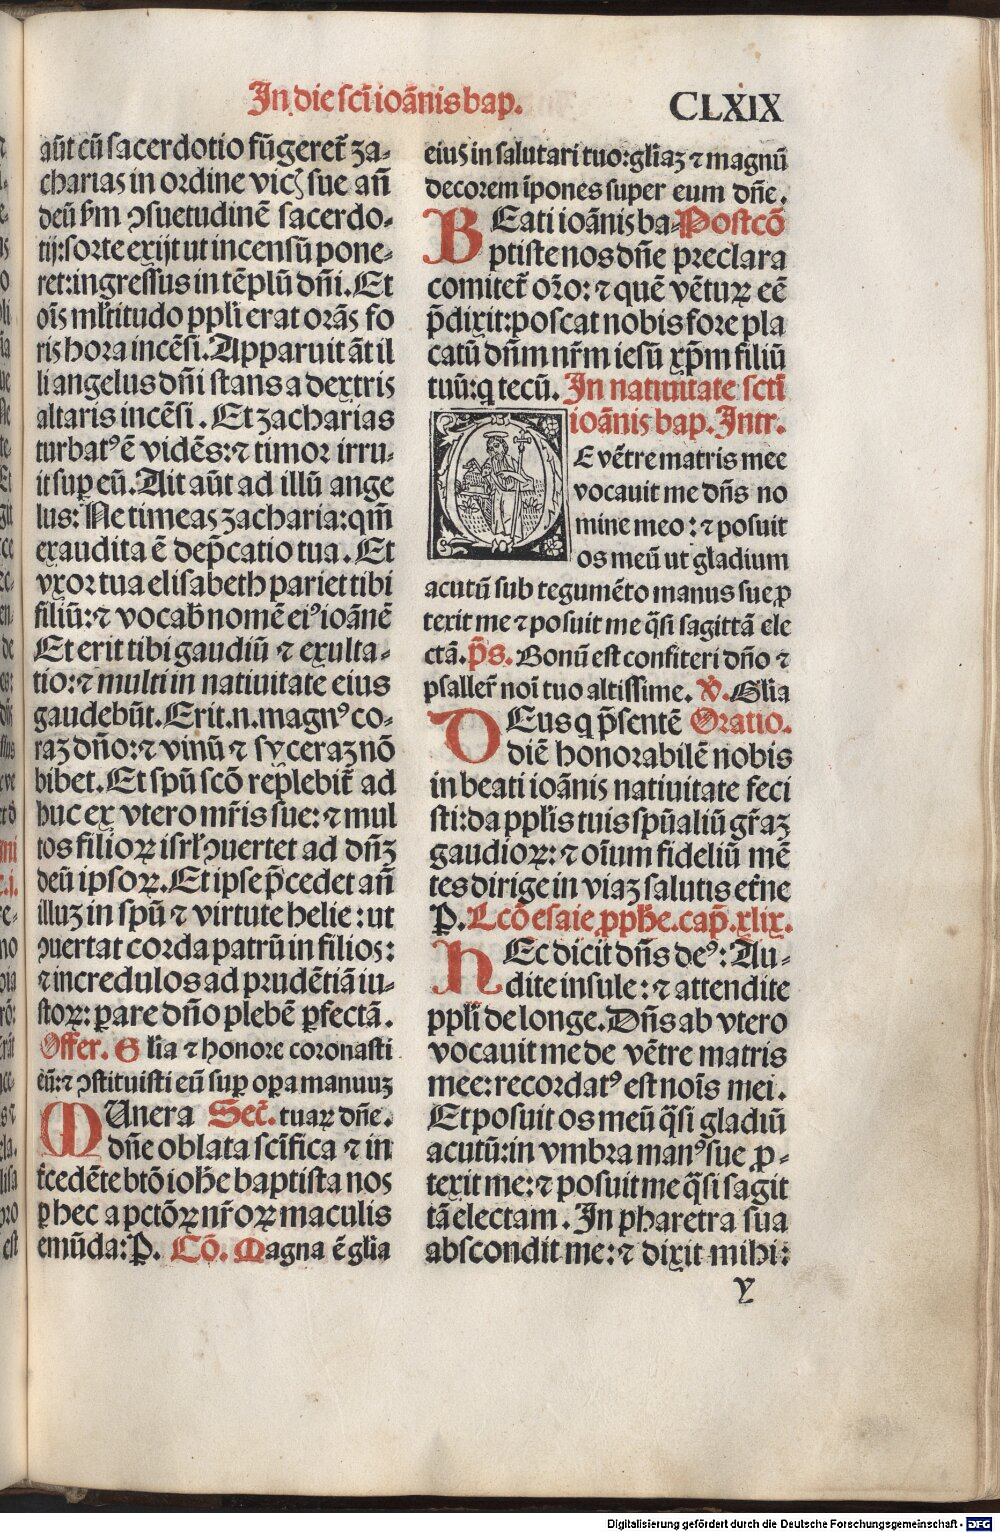 In die scti ioānis bap.
CLXIX
aūt cū sacerdotio fūgeret̄ za-
charias in ordine vicꝭ sue añ
deū ẜm ꝯsuetudinē sacerdo-
tij: sorte exijt ut incensū pone-
ret: ingressus in tēplū dñi. Et
oīs ml̄titudo ppl̄i erat orās fo
ris hora incēsi. Apparuit āt il
li angelus dñi stans a dextris
altaris incēsi. Et zacharias
turbatꝰ ē vidēs: ⁊ timor irru-
it suꝑ eū. Ait aūt ad illū ange
lus: Ne timeas zacharia: qm̄
exaudita ē dep̄catio tua. Et
vxor tua elisabeth pariet tibi
filiū: ⁊ vocab̄ nomē eiꝰ ioānē
Et erit tibi gaudiū ⁊ exulta-
tio: ⁊ multi in natiuitate eius
gaudebūt. Erit .n. magnꝰ co-
raz dño: ⁊ vinū ⁊ syceraz nō
bibet. Et spū scō replebit̄ ad
huc ex vtero mr̄is sue: ⁊ mul
tos filioꝝ isrl̄ ꝯuertet ad dñz
deū ipsoꝝ. Et ipse p̄cedet añ
illuz in spū ⁊ virtute helie: ut
ꝯuertat corda patrū in filios:
⁊ incredulos ad prudētiā iu-
stoꝝ: ꝑare dño plebē ꝑfectā.
Offer. Glīa ⁊ honore coronasti
eū: ⁊ ꝯstituisti eū suꝑ oꝑa manuuz
MUnera Sec̄. tuaꝝ dñe.
dñe oblata scīfica ⁊ in
t̄cedēte btō ioħe baptista nos
ꝑ hec a pctōꝝ nr̄oꝝ maculis
emūda: P. Cō. Magna ē glīa
eius in salutari tuo: glīaz ⁊ magnū
decorem īpones super eum dñe.
BEati ioānis ba- Postcō
ptiste nos dñe preclara
comitet̄ orō: ⁊ quē vētuꝝ eē
p̄dixit: poscat nobis fore pla
catū dñm nr̄m iesū xp̄m filiū
tuū: q tecū. In natiuitate scti
ioānis bap. Intr.
E vētre matris mee
vocauit me dñs no
mine meo: ⁊ posuit
os meū ut gladium
acutū sub tegumēto manus sue ꝓ
texit me ⁊ posuit me q̄si sagittā ele
ctā. p̄s. Bonū est confiteri dño ⁊
psaller̄ noī tuo altissime. ℣. Glīa
DEus q p̄sentē Oratio.
diē honorabilē nobis
in beati ioānis natiuitate feci
sti: da ppl̄is tuis spūaliū gr̄az
gaudioꝝ: ⁊ oīum fideliū mē
tes dirige in viaz salutis et̄ne
P. Lcō esaie ꝓpħe. cap̄. xlix.
HEc dicit dñs deꝰ: Au-
dite insule: ⁊ attendite
ppl̄i de longe. Dñs ab vtero
vocauit me de vētre matris
mee: recordatꝰ est noīs mei.
Et posuit os meū q̄si gladiū
acutū: in vmbra manꝰ sue ꝓ-
texit me: ⁊ posuit me q̄si sagit
tā electam. In pharetra sua
abscondit me: ⁊ dixit mihi:
y
Digitalisierung gefördert durch die Deutsche Forschungsgemeinschaft - DFG